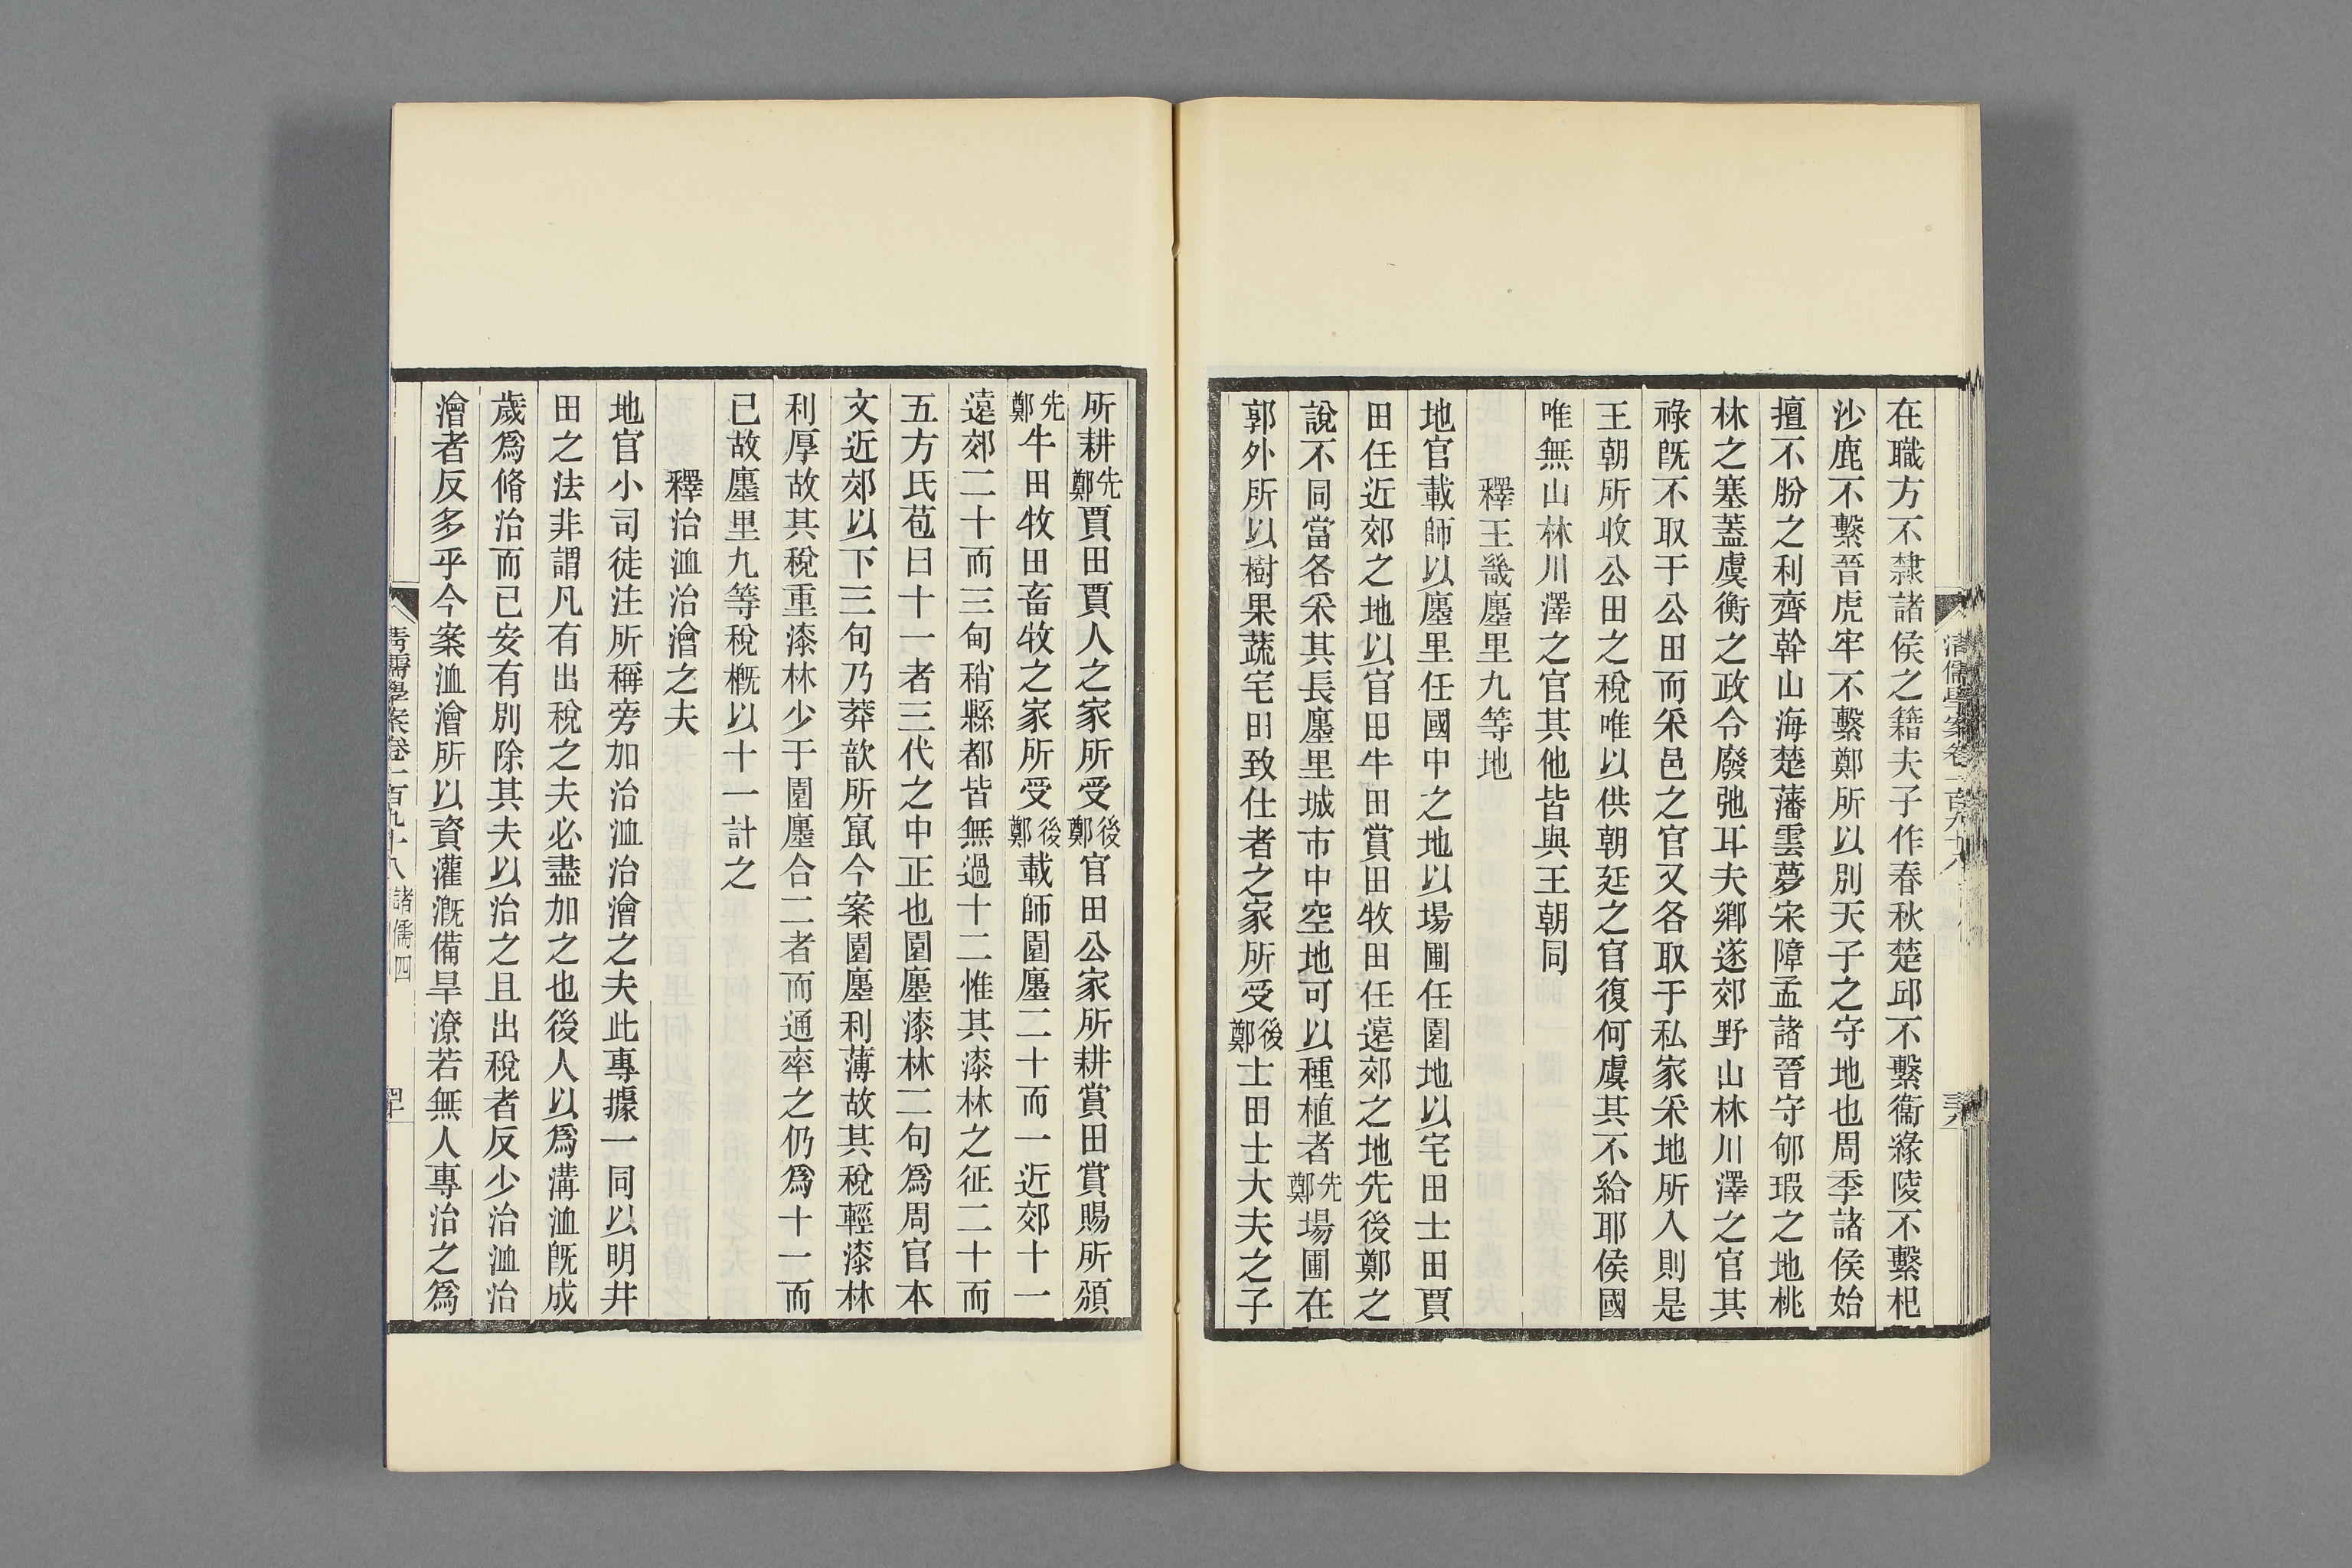 在職方不隸諸侯之籍夫子作春秋楚邱不繫衞緣陵不繫杞
沙鹿不繫晉虎牢不繫鄭所以別天子之守地也周季諸侯始
擅不朌之利齊幹山海楚藩雲夢宋障孟諸晉守郇瑕之地桃
林之塞蓋虞衡之政令廢弛耳夫鄉遂郊野山林川澤之官其
祿旣不取于公田而采邑之官又各取于私家采地所入則是
王朝所收公田之稅唯以供朝廷之官復何虞其不給耶侯國
唯無山林川澤之官其他皆與王朝同
釋王畿廛里九等地
地官載師以廛里任國中之地以場圃任園地以宅田士田賈
田任近郊之地以官田牛田賞田牧田任遠郊之地先後鄭之
說不同當各采其長廛里城市中空地可以種植者先鄭場圃在
郭外所以樹果蔬宅田致仕者之家所受後鄭士田士大夫之子
所耕先鄭賈田賈人之家所受後鄭官田公家所耕賞田賞賜所頒
先鄭牛田牧田畜牧之家所受後鄭載師園廛二十而一近郊十一
遠郊二十而三甸稍縣都皆無過十二惟其漆林之征二十而
五方氏苞曰十一者三代之中正也園廛漆林二句爲周官本
文近郊以下三句乃莽歆所竄今案園廛利薄故其稅輕漆林
利厚故其稅重漆林少于園廛合二者而通率之仍爲十一而
已故廛里九等稅槪以十一計之
釋治洫治澮之夫
地官小司徒注所稱旁加治洫治澮之夫此專據一同以明井
田之法非謂凡有出稅之夫必盡加之也後人以爲溝洫旣成
歲爲脩治而已安有別除其夫以治之且出稅者反少治洫治
澮者反多乎今案洫澮所以資灌漑備旱潦若無人專治之爲
清儒學案卷一百九十八 諸儒四